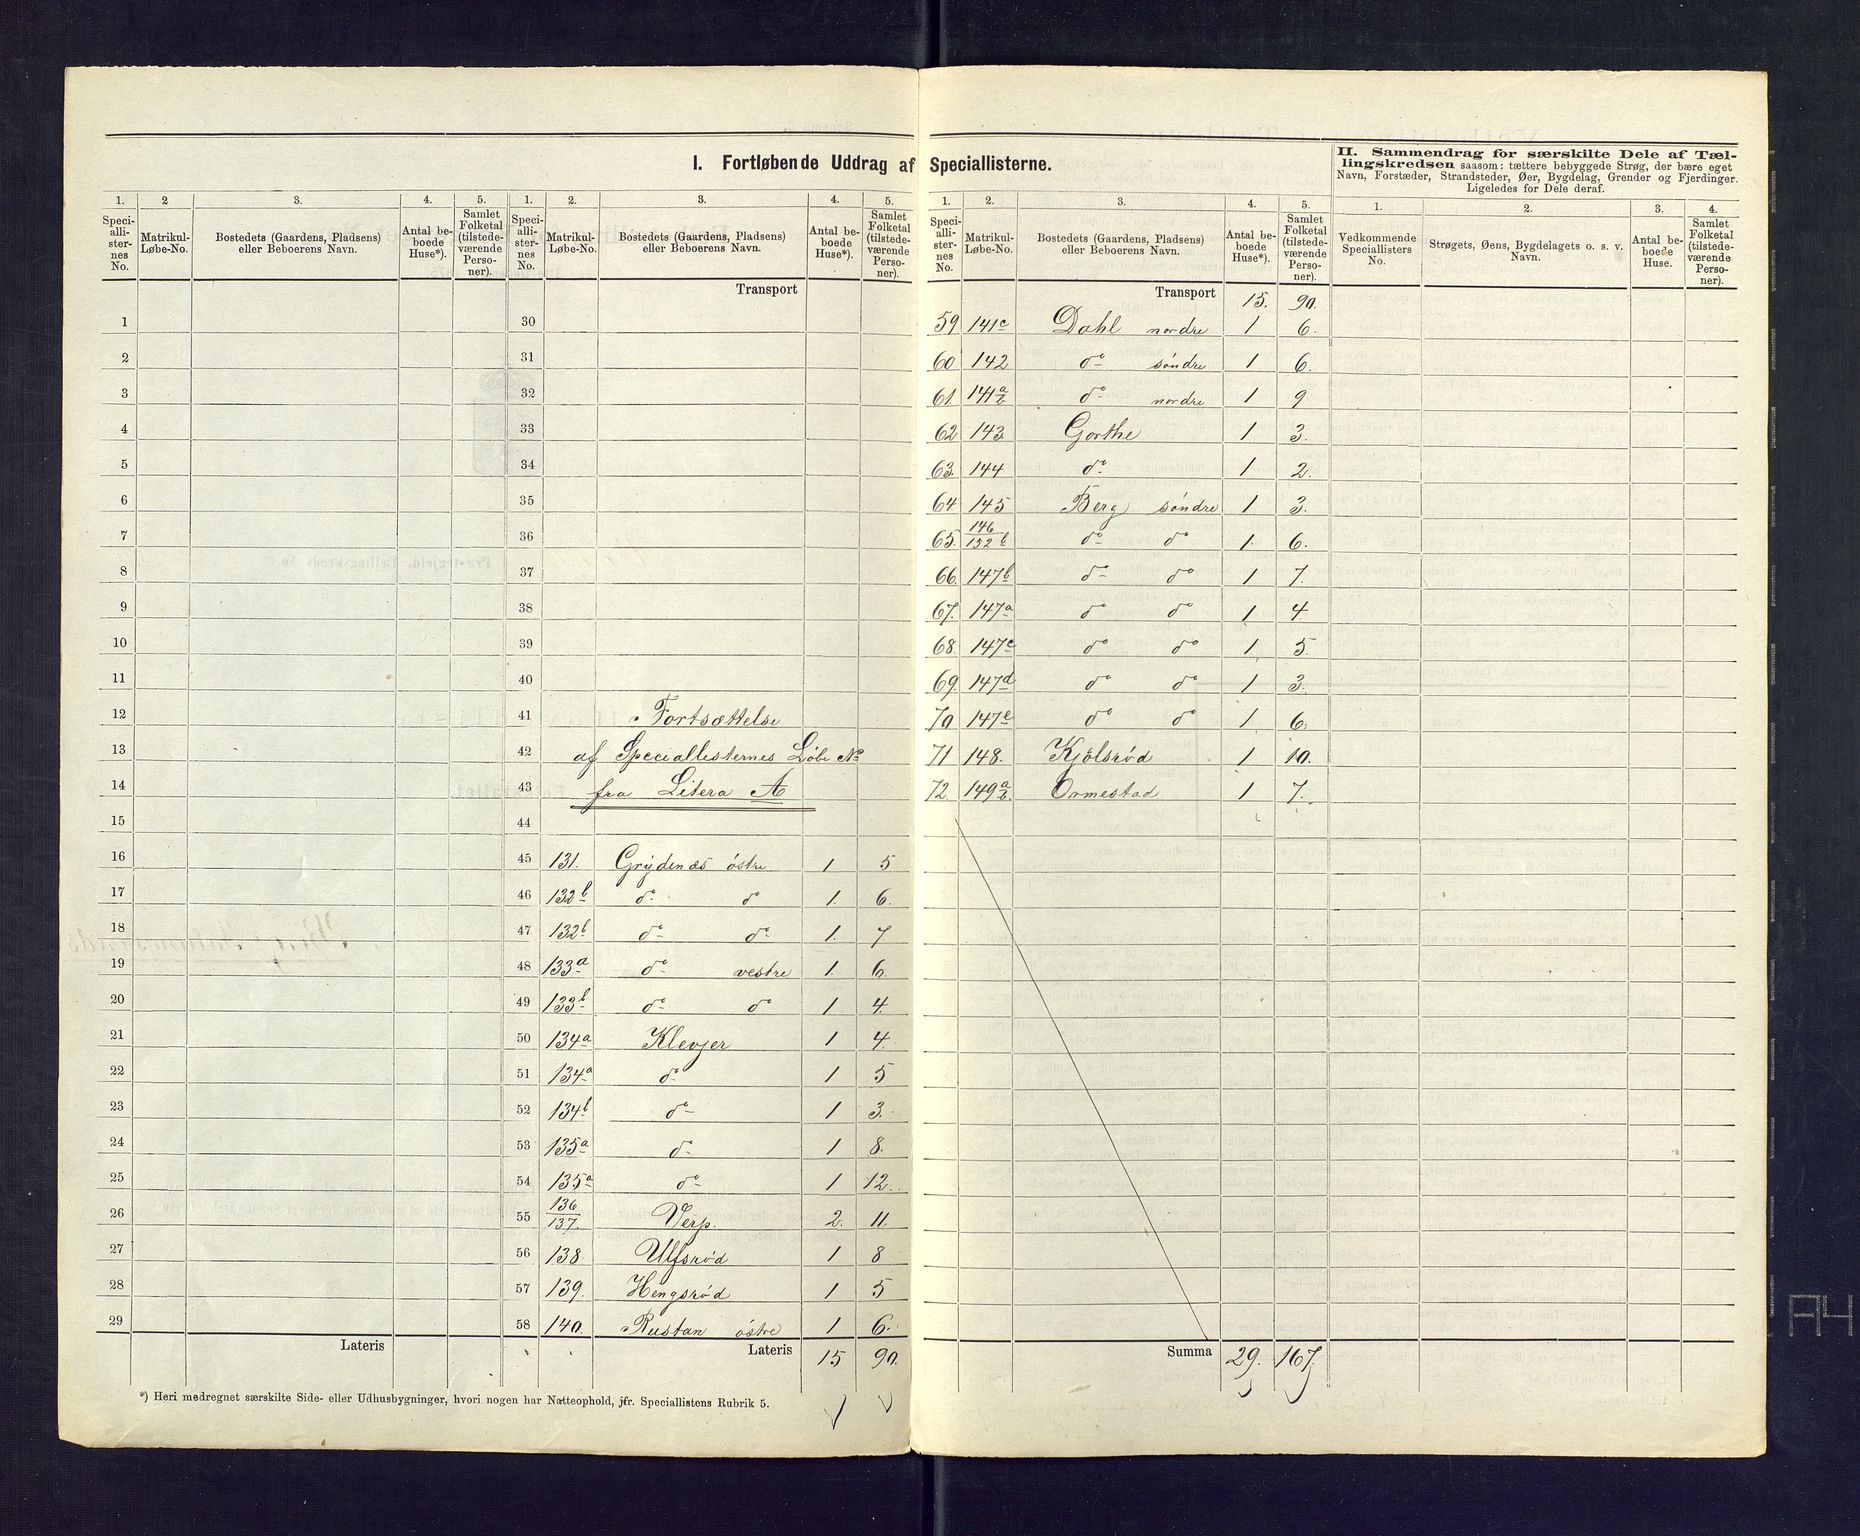 I. Fortløbende Uddrag af Speciallisterne.
II. Sammendrag for særskilte Dele af Tællingskredsen saasom: tættere bebyggede Strøg, der bære eget
Navn, Forstæder, Strandsteder, Øer, Bygdelag, Grender og Fjerdinger.
Ligeledes for Dele deraf.
1. 2 3. 4. 5. 1. 2. 3. 4. 5.
Speciallisternes No. Matrikul-Løbe-No. Bostedets (Gaardens, Pladsens) eller Beboerens Navn. Antal beboede Huse*). Samlet Folketal (tilstedeværende Personer). Speciallisternes No. Matrikul-Løbe-No. Bostedets (Gaardens, Pladsens) eller Beboerens Navn. Antal beboede Huse*). Samlet Folketal (tilstedeværende Personer).
Transport
1 30
2 31
3 32
4 33
5 34
6 35
7 36
8 37
9 38
10 39
11 40
12 41 Fortsættelse
13 42 af Speciallisternes Løbe No
14 43 fra Litera A
15 44
16 45 131. Grydenæs östre 1 5
17 46 132b do do 1. 6.
18 47 132b do do 1. 7
19 48 133a do vestre 1. 6.
20 49 133b do do 1 4.
21 50 134a Klevjer 1 4.
22 51 134a do 1 5
23 52 134b do 1 3.
24 53 135a do 1 8.
25 54 135a do 1 12.
26 55 136/137. Verp. 2. 11.
27 56 138 Ulfsrød 1 8
28 57 139. Hengsrød 1 5
29 58 140. Rustan östre 1 6.
Lateris Lateris 15 90.
*) Heri medregnet særskilte Side- eller Udhusbygninger, hvori nogen har Natteophold, jfr. Speciallistens Rubrik 5.
1. 2. 3. 4. 5. 1. 2. 3. 4.
Speciallisternes No. Matrikul-Løbe-No. Bostedets (Gaardens, Pladsens) eller Beboerens Navn. Antal beboede Huse*). Samlet Folketal (tilstedeværende Personer). Vedkommende Speciallisters No. Strøgets, Øens, Bygdelagets o. s. v. Navn. Antal beboede Huse. Samlet Folketal (tilstedeværende Personer).
Transport 15. 90.
59 141c Dahl nordre 1 6.
60 142 do søndre 1 6.
61. 141a/b do nordre 1 9
62 143 Gorthe 1 3.
63. 144 do 1 2.
64 145 Berg søndre 1 3.
65. 146/132b do do 1. 6.
66. 147b do do 1 7.
67. 147a do do 1 4
68. 147c do do 1 5.
69. 147d do do 1 3.
70 147e do do 1 6.
71 148. Kjölsrød 1 10.
72. 149a/b. Ormestad 1 7.
Summa 29. 167.
A4